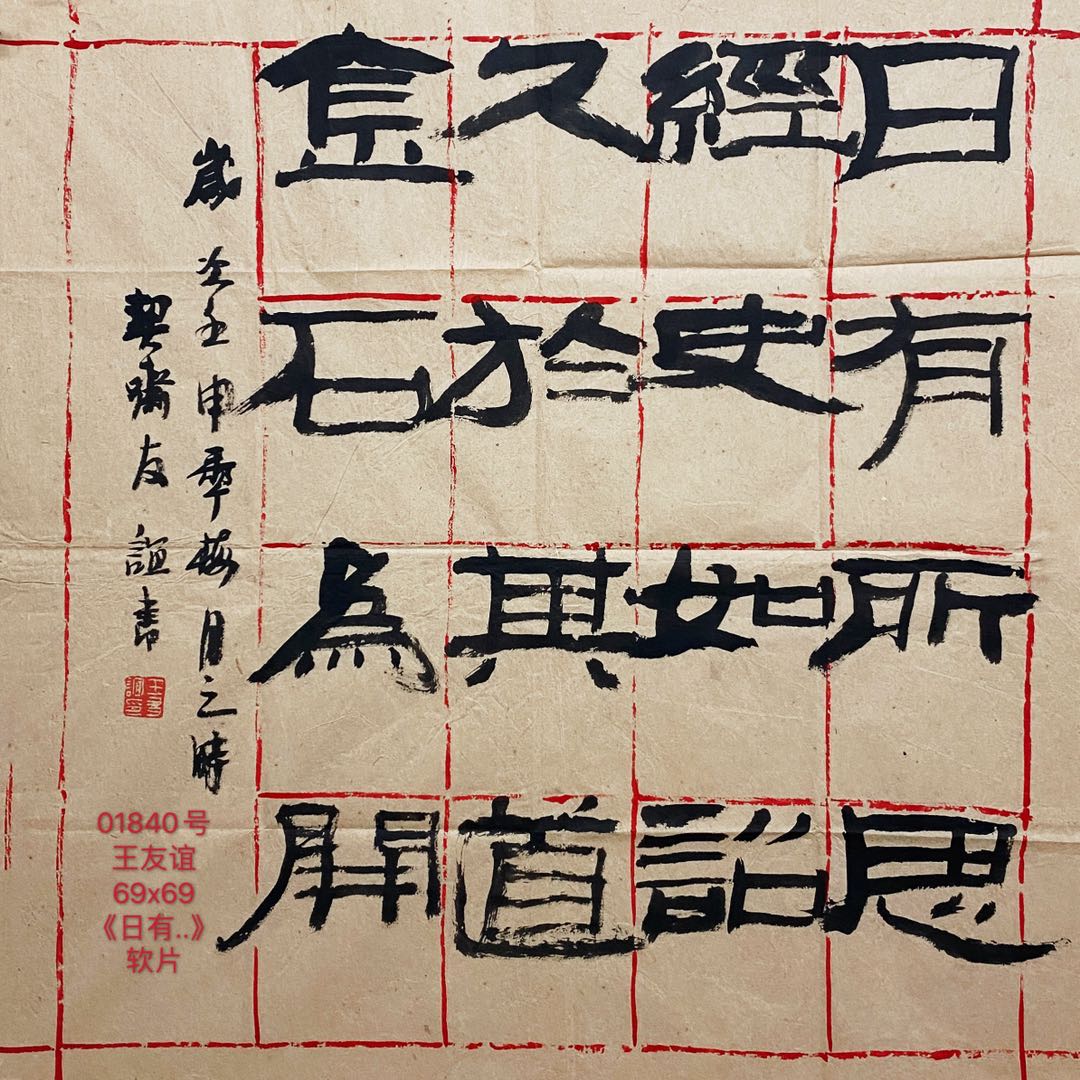 日有所思
經史如詔
久於其道
金石為開
歲次壬申年梅月之時
友誼書
王友誼印
01840号
王友谊
69x69
《日有..》
软片